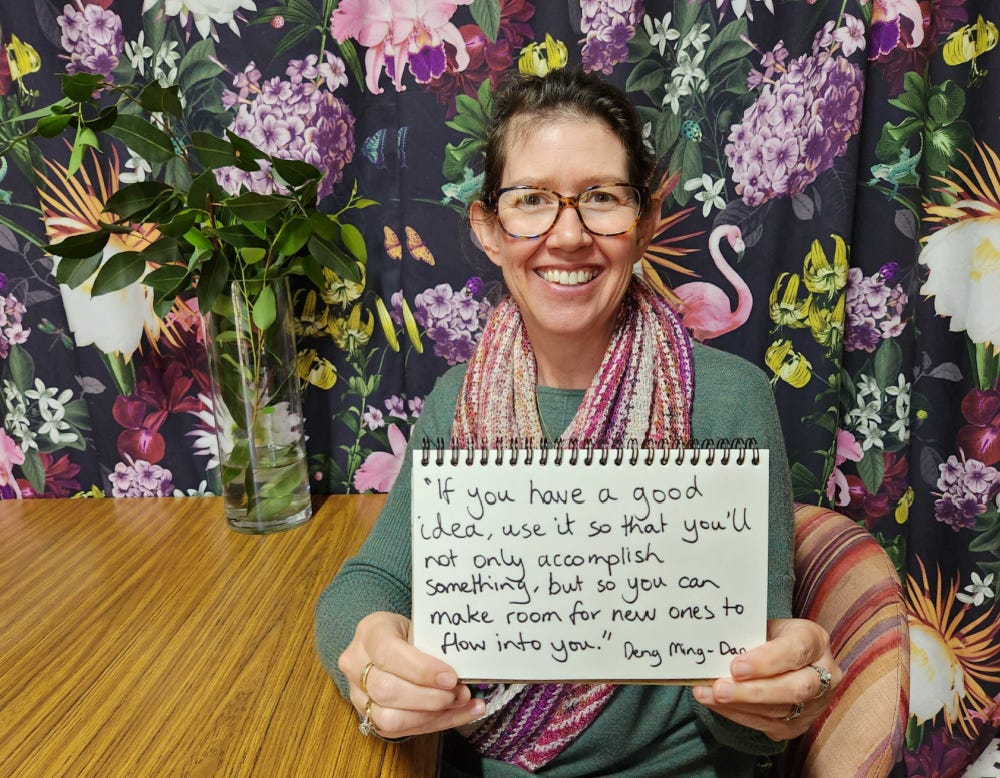 "If you have a good
idea, use it so that you'll
not only accomplish
something, but so you can
make room for new ones to
flow into you." Deng Ming-Dao